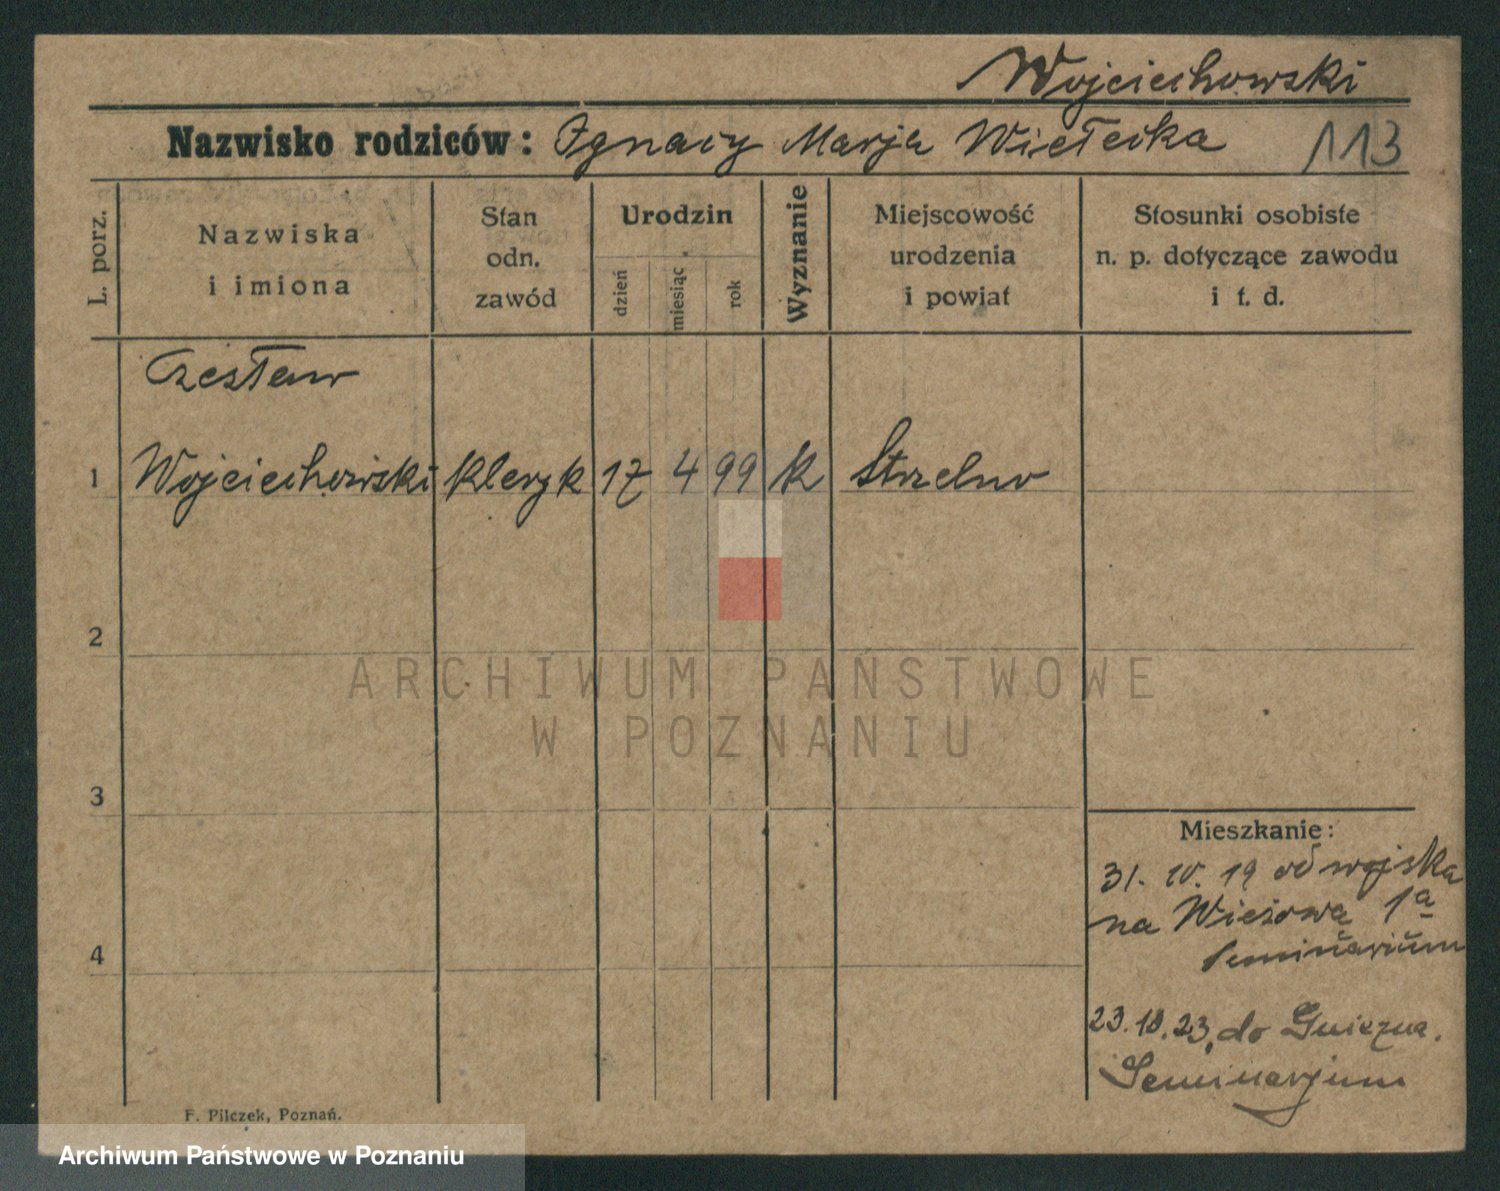 Wojciechowski
Nazwisko rodziców: Ignacy Marja Wietecka 113
L. porz.
Nazwiska
i imiona
Stan
odn.
zawód
Urodzin
dzień
miesiąc
rok
Wyznanie
Miejscowość
urodzenia
i powiat
Stosunki osobiste
n. p. dotyczące zawodu
i t. d.
Czesław
1 Wojciechowski kleryk 17 4 99 k Strzelno
2
ARCHIWUM PAŃSTWOWE
W POZNANIU
3
Mieszkanie:
31. IV. 19 od wojska
na Wieżową 1a
Seminarium
4
23.10.23, do Gniezna.
Seminarjum
F. Pilczek, Poznań.
Archiwum Państwowe w Poznaniu